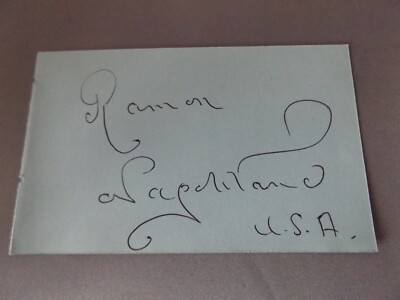 Ramon
Napolitano
U.S.A.